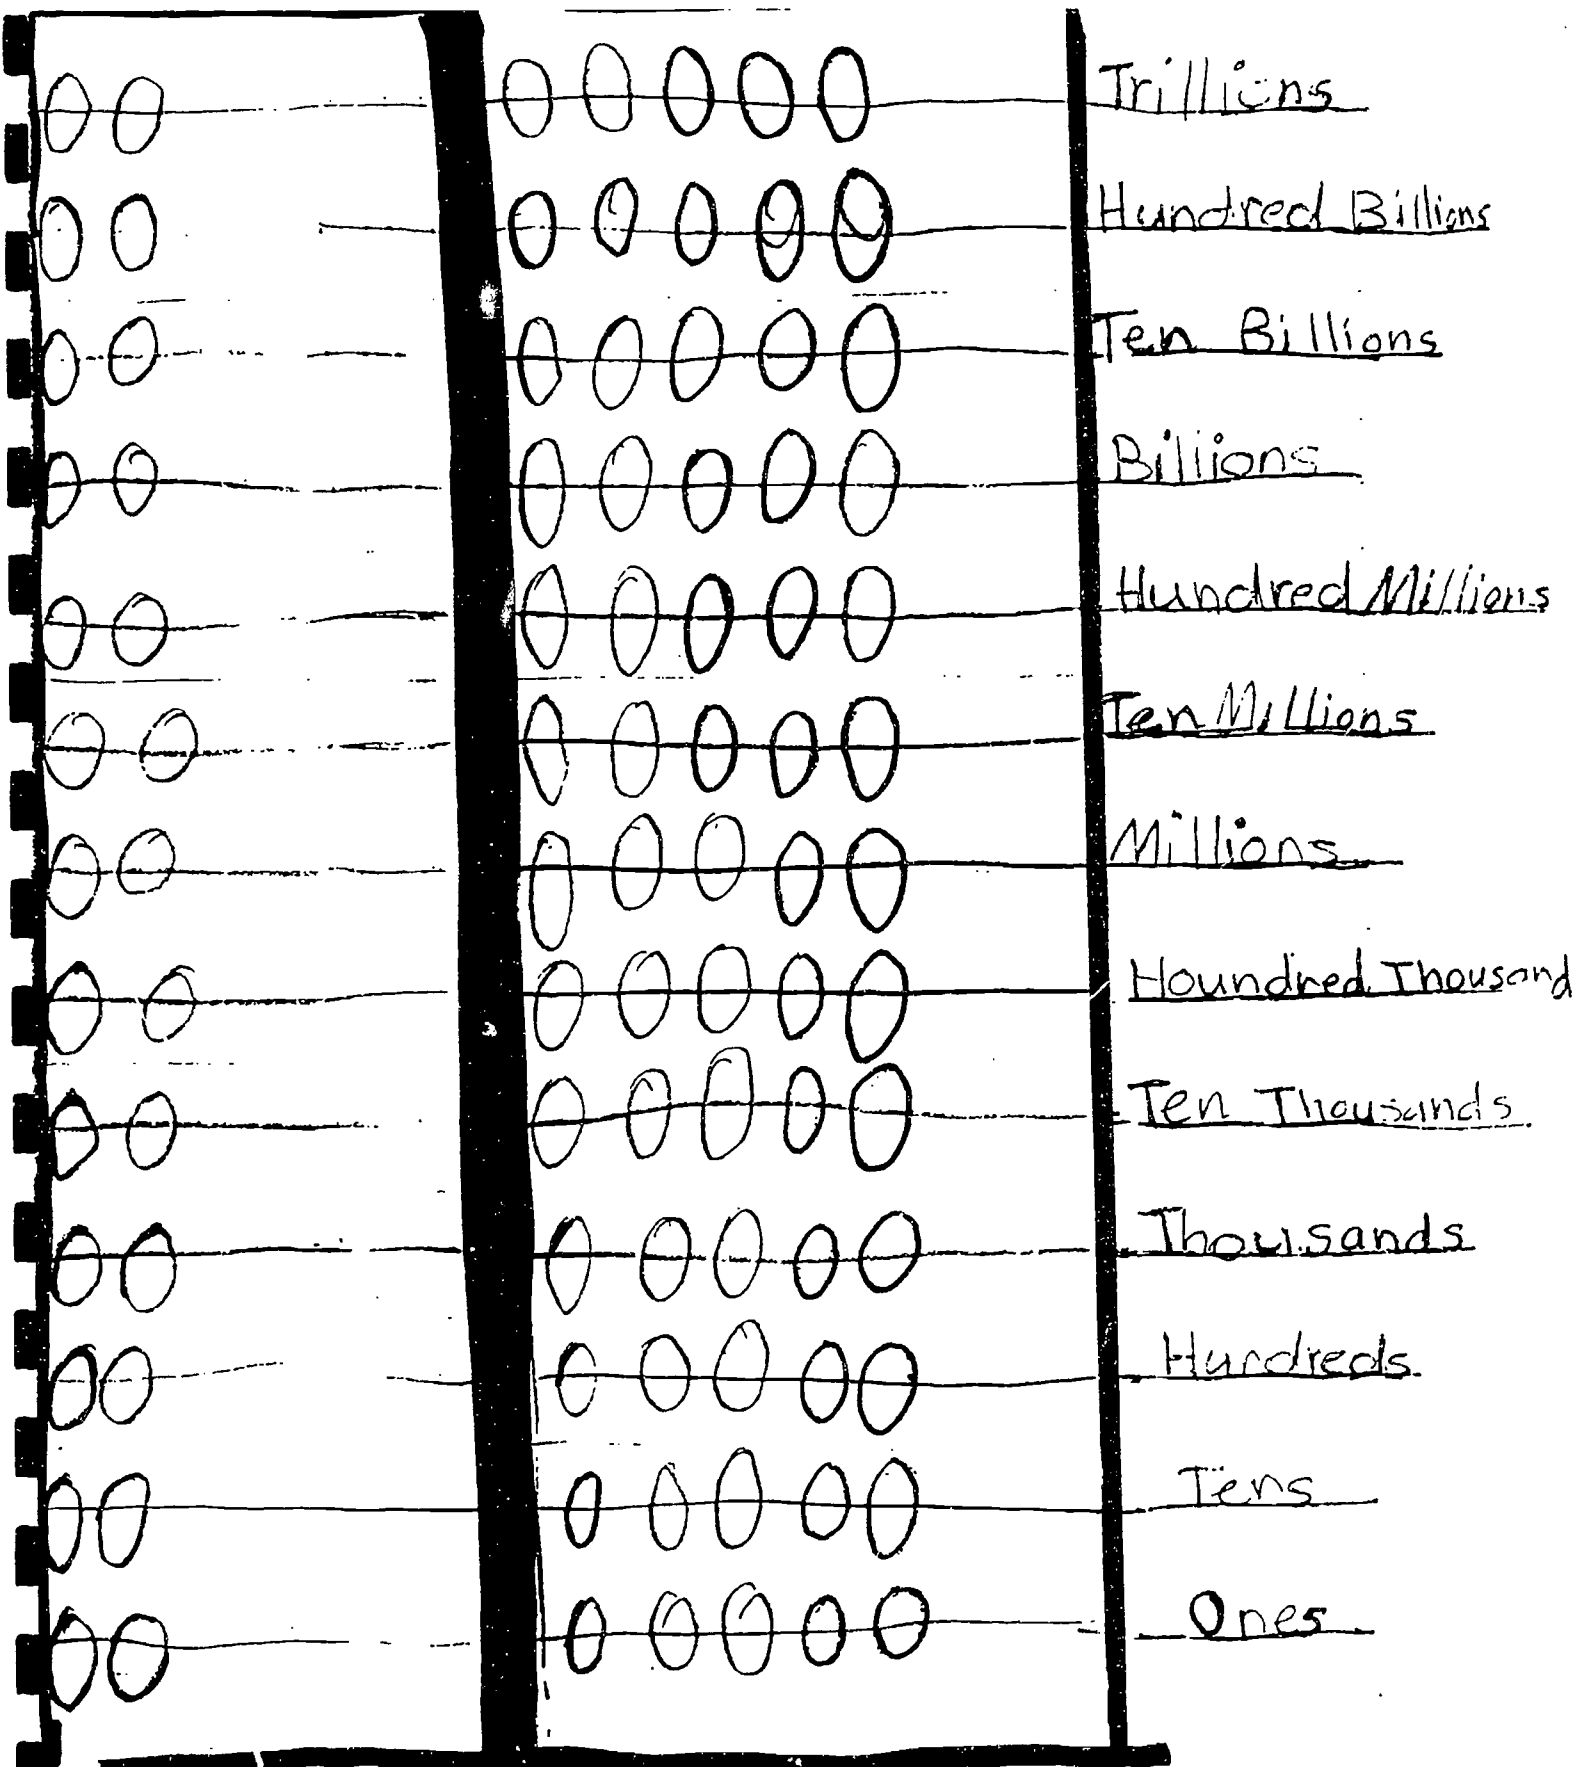 Trillions
Hundred Billions
Ten Billions
Billions
Hundred Millions
Ten Millions
Millions
Houndred Thousand
Ten Thousands
Thousands
Hundreds
Tens
Ones